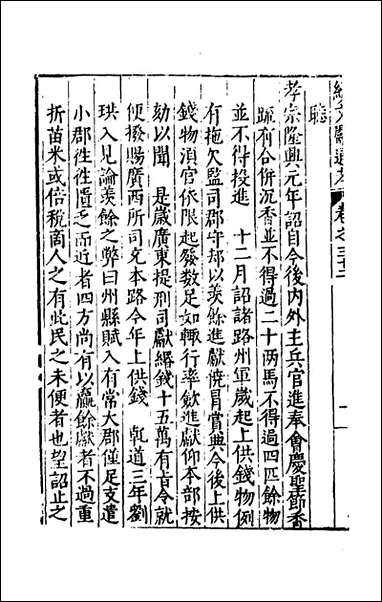 續文獻通考 卷之三十二
聽
孝宗隆興元年詔自今後內外主兵官進奉會慶聖節香
䟽有合併沉香並不得過二十两馬不得過四匹餘物
並不得投進 十二月詔諸路州軍歲起上供錢物例
有拖欠監司郡守却以羡餘進獻僥冒賞典今後上供
錢物湏官依限起發數足如輙行率歛進獻仰本部按
劾以聞 是歲廣東提刑司獻緡錢十五萬有旨令就
便撥賜廣西所司充本路今年上供錢 乹道三年劉
珙入見論羡餘之弊曰州縣賦入有常大郡僅足支遣
小郡徃徃匱乏而近者四方尚有以羸餘獻者不過重
折苗米或倍稅啇人之有此民之未便者也望詔止之